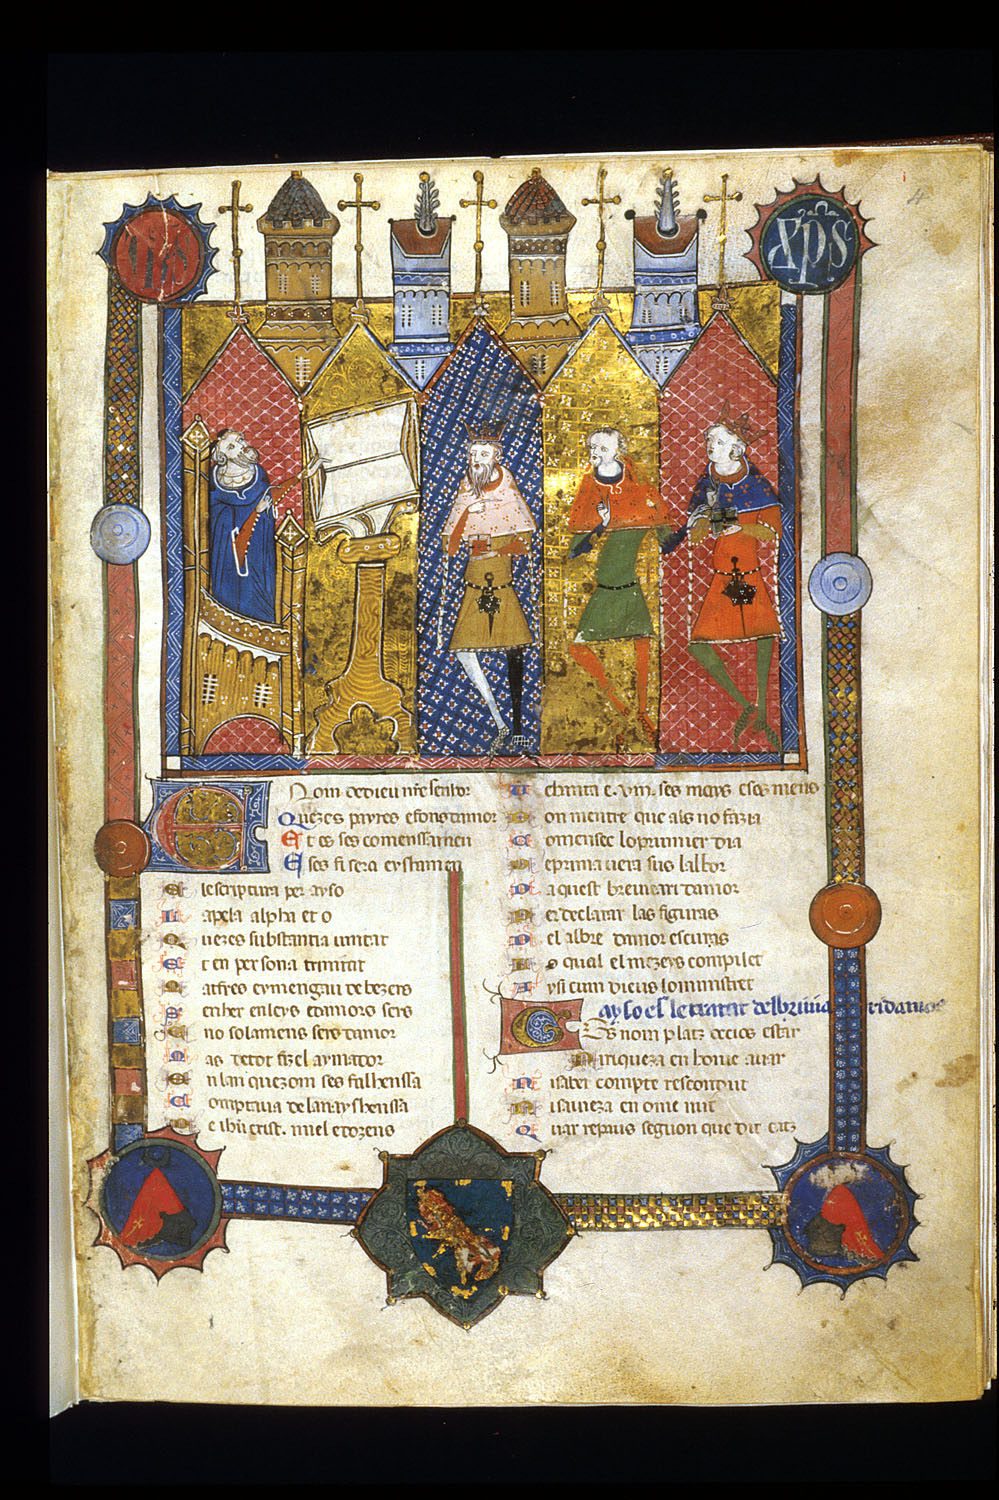 yhs
xps
4
El nom de dieu nr̄e senhor
Quezes payres e fons damor
Et es ses comensamen
E ses fi sera eyssamen
Ab lescriptura per ayso
Lapela alpha et o
Quezes substantia unitat
Et en persona trinitat
Matfres ermengau de bezers
Senher en leys et amors sers
E no solamens sers damor
Mas de tot fizel aymador
En lan quezom ses falhensa
Comptava de la nayshensa
De ihū crist. miel e dozens
Uchanta e. viii. ses mays e ses mens
Domentre que als no fazia
Comensec lo prumier dia
De primavera sus lalbor
Daquest breviari damor
Per declarar las figuras
Del albre damor escuras
Lo qual el mezeys compilet
Aysi cum dieus lo ministret
Ayso es le tratat del breviari damor
Ges nom platz deCios estar
Ni riqueza en home avar
Ni saber compte rescondut
Ni savieza en ome mut
Quar repaus segon que dit catz